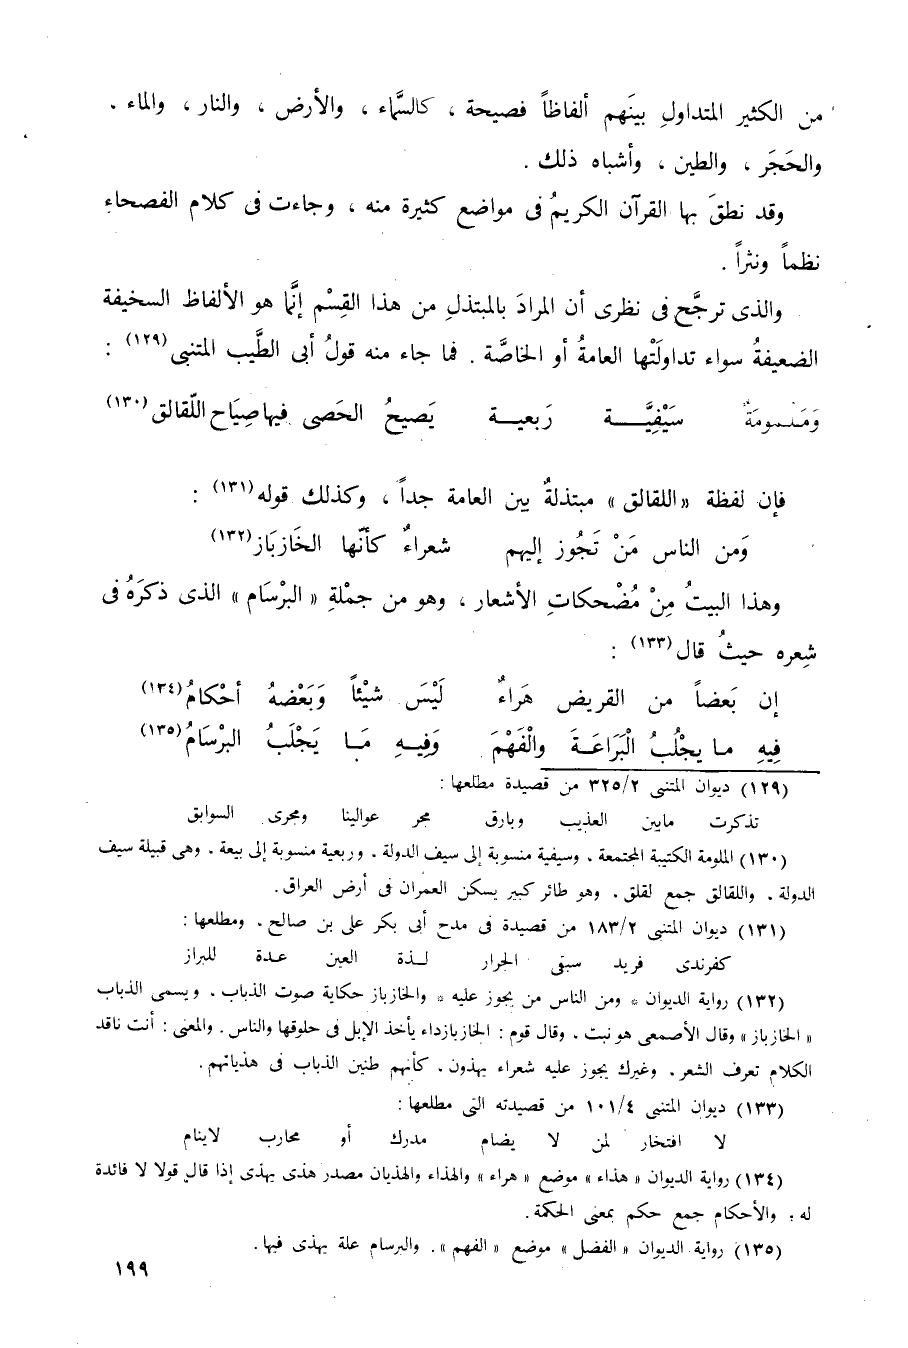 من الكثير المتداولِ بينَهم ألفاظاً فصيحة ، كالسَّماء ، والأرض ، والنار ، والماء .
والحَجَر ، والطين ، وأشباه ذلك .
وقد نطقَ بها القرآن الكريمُ فى مواضع كثيرة منه ، وجاءت فى كلام الفصحاءِ
نظماً ونثراً .
والذى ترجَّح فى نظرى أن المرادَ بالمبتذلِ من هذا القِسْم إنَّما هو الألفاظ السخيفة
الضعيفةُ سواء تداولَتْها العامةُ أو الخاصَّة . فما جاء منه قولُ أبى الطَّيب المتنبى(١٢٩) :
وَمَلْمومَةٌ سَيْفِيَّـــة رَبعيــة يَصيحُ الحَصى فيها صِيَاح اللّقالق(١٣٠)
فإن لفظة «اللقالق» مبتذلةٌ بين العامة جداً ، وكذلك قوله(١٣١) :
وَمن الناس مَنْ تَجُوز إليهم شعراءٌ كأنّها الخَازبَاز(١٣٢)
وهذا البيتُ مِنْ مُضْحكاتِ الأشعار ، وهو من جمْلةِ « البرْسَام » الذى ذكرَهُ فى
شعره حيثُ قال(١٣٣) :
إن بَعضاً من القريض هَراءٌ لَيْسَ شيْئاً وَبَعْضهُ أحْكامُ(١٣٤)
فِيهِ ما يجْلُبُ الْبَرَاعَةَ والْفَهْمَ وَفِيهِ مَا يَجْلَبُ البرْسَامُ(١٣٥)
(١٢٩) ديوان المتنبى ٣٢٥/٢ من قصيدة مطلعها :
تذكرت مابين العذيب وبارق مجر عوالينا ومجرى السوابق
(١٣٠) الملومة الكتيبة المجتمعة ، وسيفية منسوبة إلى سيف الدولة . وربعية منسوبة إلى بيعة . وهى قبيلة سيف
الدولة . واللقالق جمع لقلق . وهو طائر كبير يسكن العمران فى أرض العراق.
(١٣١) ديوان المتنبى ١٨٣/٢ من قصيدة فى مدح أبى بكر على بن صالح . ومطلعها :
كفرندى فريد سبقى الجرار لـذة العين عـدة للبراز
(١٣٢) رواية الديوان * ومن الناس من يجوز عليه * والخازباز حكاية صوت الذباب . ويسمى الذباب
« الخازباز » وقال الأصمعى هو نبت . وقال قوم : الخازبازداء يأخذ الإبل فى حلوقها والناس . والمعنى : أنت ناقد
الكلام تعرف الشعر . وغيرك يجوز عليه شعراء يهذون . كأنهم طنين الذباب فى هذياتهم .
(١٣٣) ديوان المتنبى ١٠١/٤ من قصيدته التى مطلعها :
لا افتخار لمن لا يضام مدرك أو محارب لاينام
(١٣٤) رواية الديوان « هذاء » موضع « هراء » والهذاء والهذيان مصدر هذى يهذى إذا قال قولا لا فائدة
له . والأحكام جمع حكم بمعنى الحكمة .
(١٣٥) رواية الديوان « الفضل » موضع « الفهم » . والبرسام علة يهذى فيها .
١٩٩